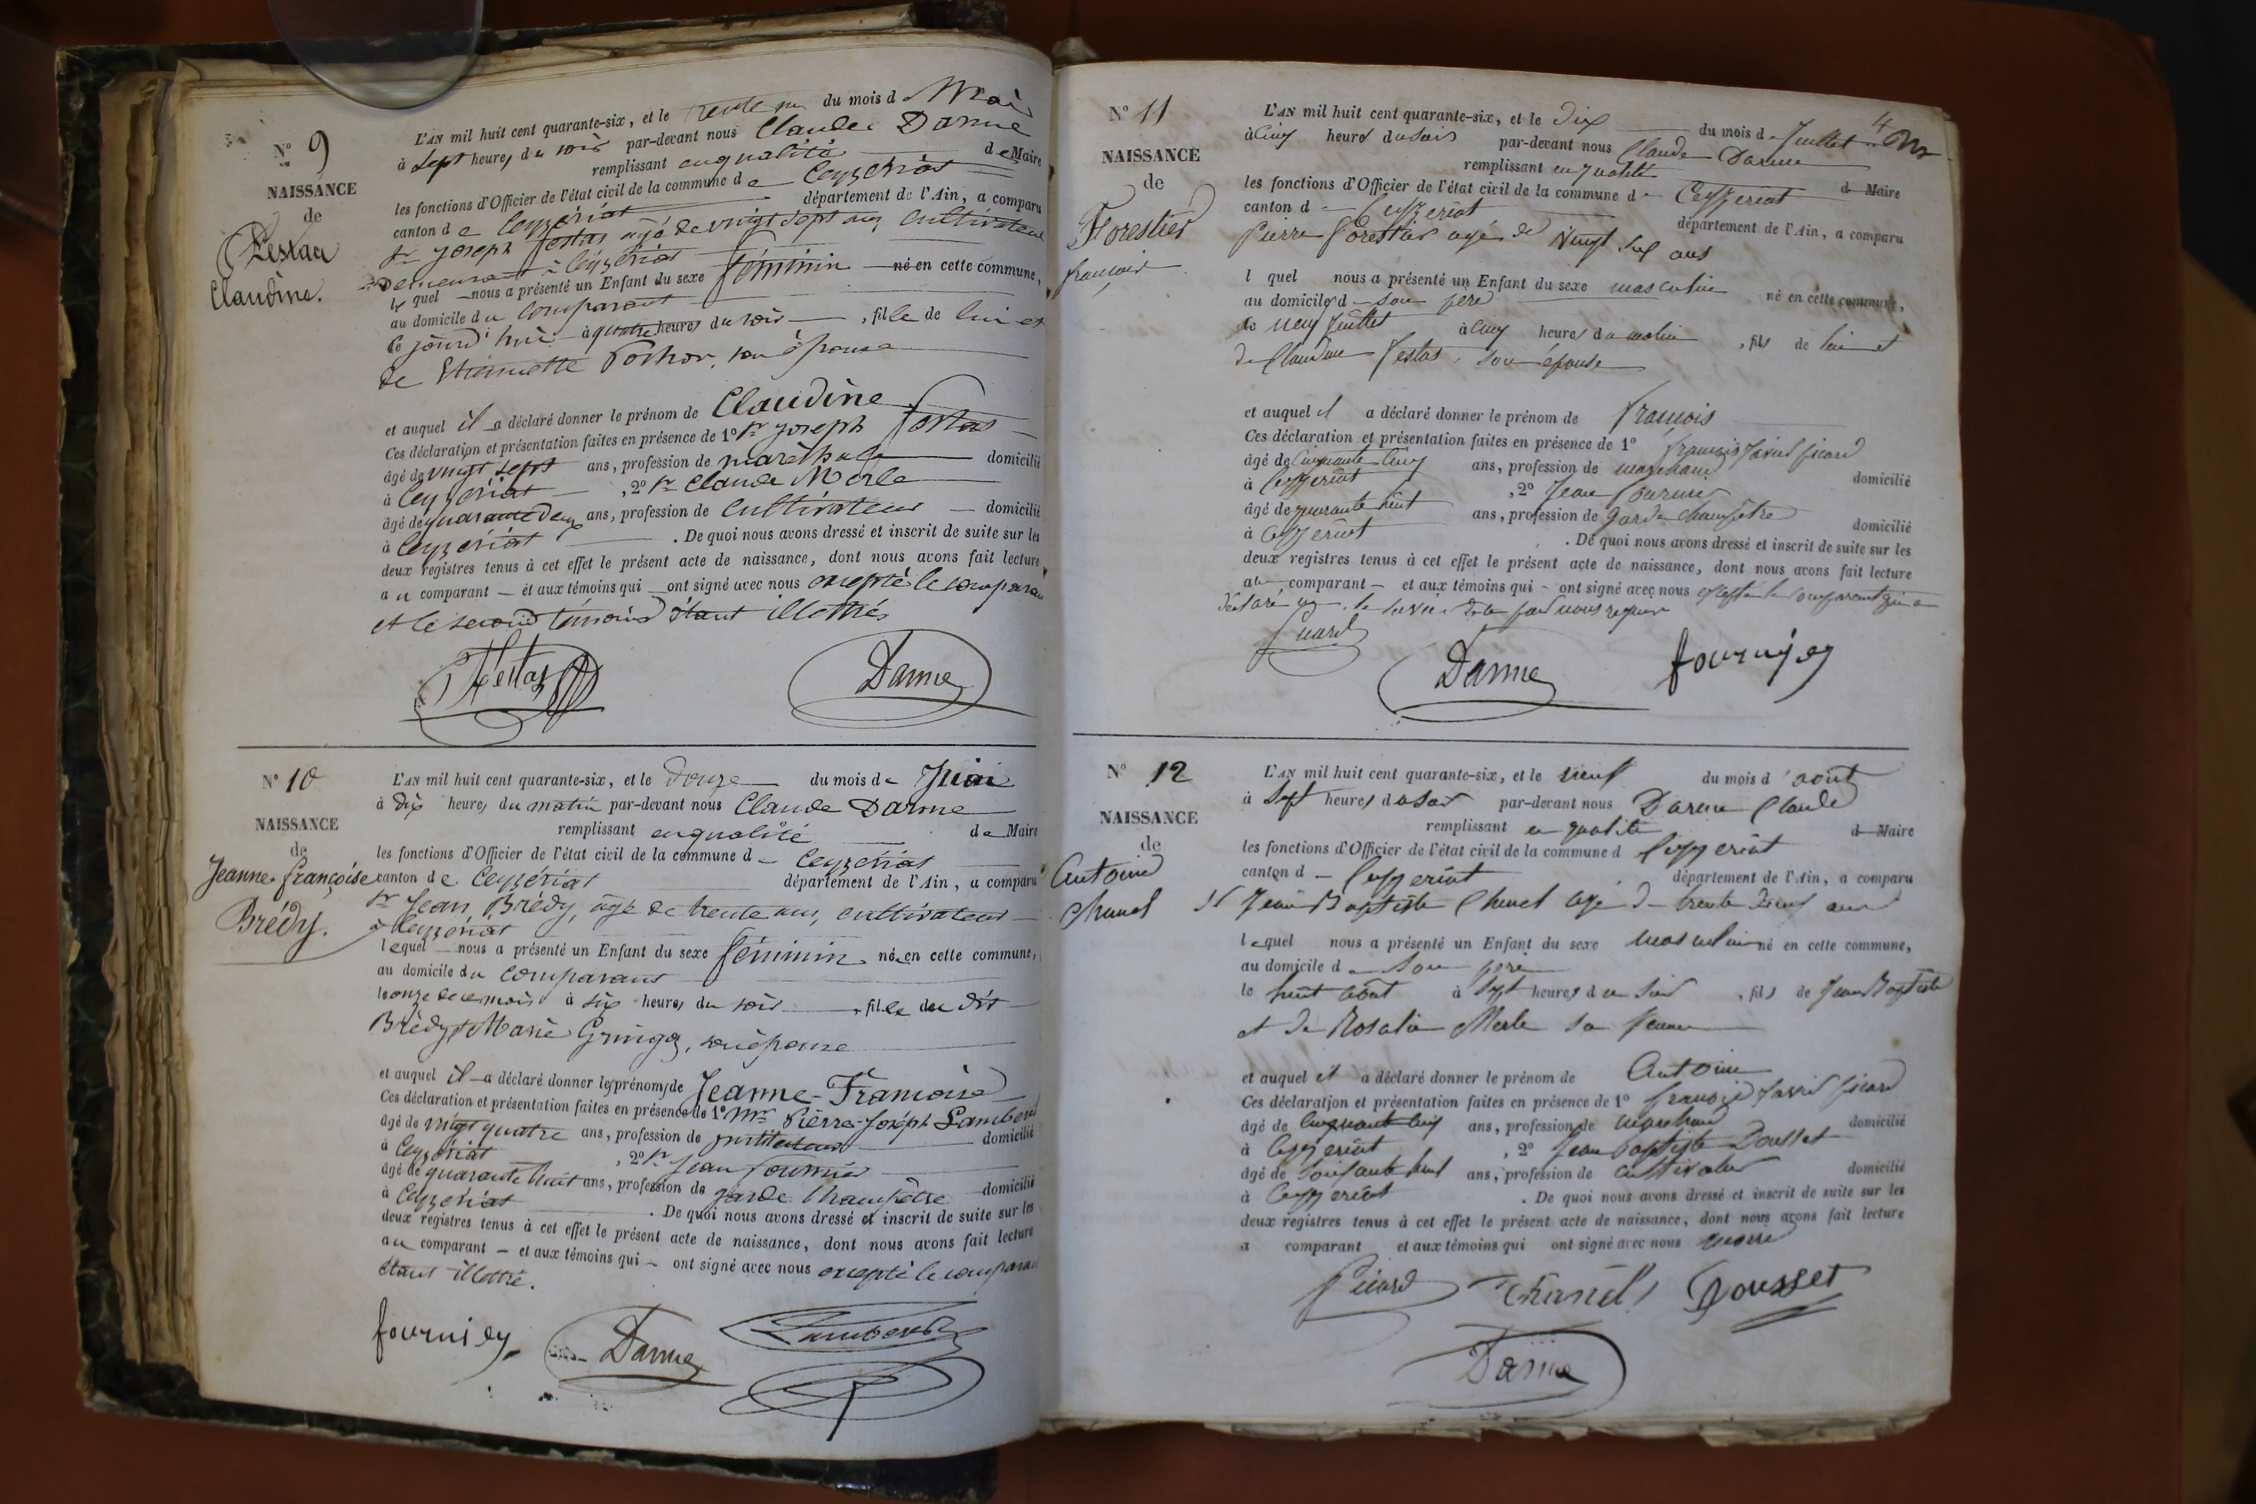 N° 9
NAISSANCE
de
Pestas
Claudine.
L'AN mil huit cent quarante-six, et le trente un du mois d Mai
à sept heures du soir par-devant nous Claude Darme
remplissant en qualité de Maire
les fonctions d'Officier de l'état civil de la commune de Ceyzériat
canton de Ceyzériat département de l'Ain, a comparu
Sr Joseph festas agé de vingt sept ans, cultivateur
demeurant à Ceyzériat
lequel nous a présenté un Enfant du sexe féminin né en cette commune,
au domicile du comparant
ce jourd'hui à quatre heures du soir, fille de lui et
de Etiennette son épouse
et auquel il a déclaré donner le prénom de Claudine
Ces déclaration et présentation faites en présence de 1° Sr Joseph festas
âgé de vingt sept ans, profession de maréchal domicilié
à Ceyzériat, 2° Sr Claude Merle
âgé de quarante deux ans, profession de cultivateur domicilié
à Ceyzériat. De quoi nous avons dressé et inscrit de suite sur les
deux registres tenus à cet effet le présent acte de naissance, dont nous avons fait lecture
au comparant et aux témoins qui ont signé avec nous excepté le comparant
et le second témoins étant illettrés
festas Darme
N° 10
NAISSANCE
de
Jeanne-françoise
Brédy.
L'AN mil huit cent quarante-six, et le douze du mois de Juin
à dix heures du matin par-devant nous Claude Darme
remplissant en qualité de Maire
les fonctions d'Officier de l'état civil de la commune d Ceyzériat
canton de Ceyzériat département de l'Ain, a comparu
Sr Jean Brédy, agé de trente ans, cultivateur
à Ceyzériat
lequel nous a présenté un Enfant du sexe féminin née en cette commune,
au domicile du comparant
le onze de ce mois à six heures du soir, fille du dit
Brédy & Marie son épouse
et auquel il a déclaré donner les prénoms de Jeanne-Françoise
Ces déclaration et présentation faites en présence de 1° Mr Pierre-Joseph Lambert
âgé de vingt quatre ans, profession de instituteur domicilié
à Ceyzériat, 2° Sr Jean fournier
âgé de quarante huit ans, profession de garde champêtre domicilié
à Ceyzériat. De quoi nous avons dressé et inscrit de suite sur les
deux registres tenus à cet effet le présent acte de naissance, dont nous avons fait lecture
au comparant et aux témoins qui ont signé avec nous excepté le comparant
étant illettré.
fournier Darme Lambert
4
N° 11
NAISSANCE
de
Forestier
françois
L'AN mil huit cent quarante-six, et le dix du mois d Juillet
à cinq heures du soir par-devant nous Claude Darme
remplissant en qualité d Maire
les fonctions d'Officier de l'état civil de la commune d Ceyzeriat
canton d Ceyzeriat département de l'Ain, a comparu
Pierre forestier agé de vingt six ans
l quel nous a présenté un Enfant du sexe masculin né en cette commune,
au domicile d son père
le neuf Juillet à cinq heures du matin, fils de lui et
de Claudine festas, son épouse
et auquel il a déclaré donner le prénom de françois
Ces déclaration et présentation faites en présence de 1° françois picard
âgé de cinquante cinq ans, profession de marchand domicilié
à Ceyzeriat, 2° Jean
âgé de quarante huit ans, profession de garde champêtre domicilié
à Ceyzeriat. De quoi nous avons dressé et inscrit de suite sur les
deux registres tenus à cet effet le présent acte de naissance, dont nous avons fait lecture
au comparant et aux témoins qui ont signé avec nous excepté le comparant qui a
déclaré ne le savoir de ce par nous requis
picard Darme fournier
N° 12
NAISSANCE
de
Antoine
Chanel
L'AN mil huit cent quarante-six, et le neuf du mois d'août
à sept heures du soir par-devant nous Darme Claude
remplissant en qualité d Maire
les fonctions d'Officier de l'état civil de la commune d Ceyzeriat
canton d Ceyzeriat département de l'Ain, a comparu
Sr Jean Baptiste Chanel agé de trente deux ans
lequel nous a présenté un Enfant du sexe masculin né en cette commune,
au domicile de son père
le huit août à sept heures du soir, fils de Jean Baptiste
et de Rosalie Merle sa femme
et auquel il a déclaré donner le prénom de Antoine
Ces déclaration et présentation faites en présence de 1° françois picard
âgé de cinquante cinq ans, profession de marchand domicilié
à Ceyzeriat, 2° Jean Baptiste Dousset
âgé de ans, profession de cultivateur domicilié
à Ceyzeriat. De quoi nous avons dressé et inscrit de suite sur les
deux registres tenus à cet effet le présent acte de naissance, dont nous avons fait lecture
a comparant et aux témoins qui ont signé avec nous maire
Picard Chanel Dousset
Darme